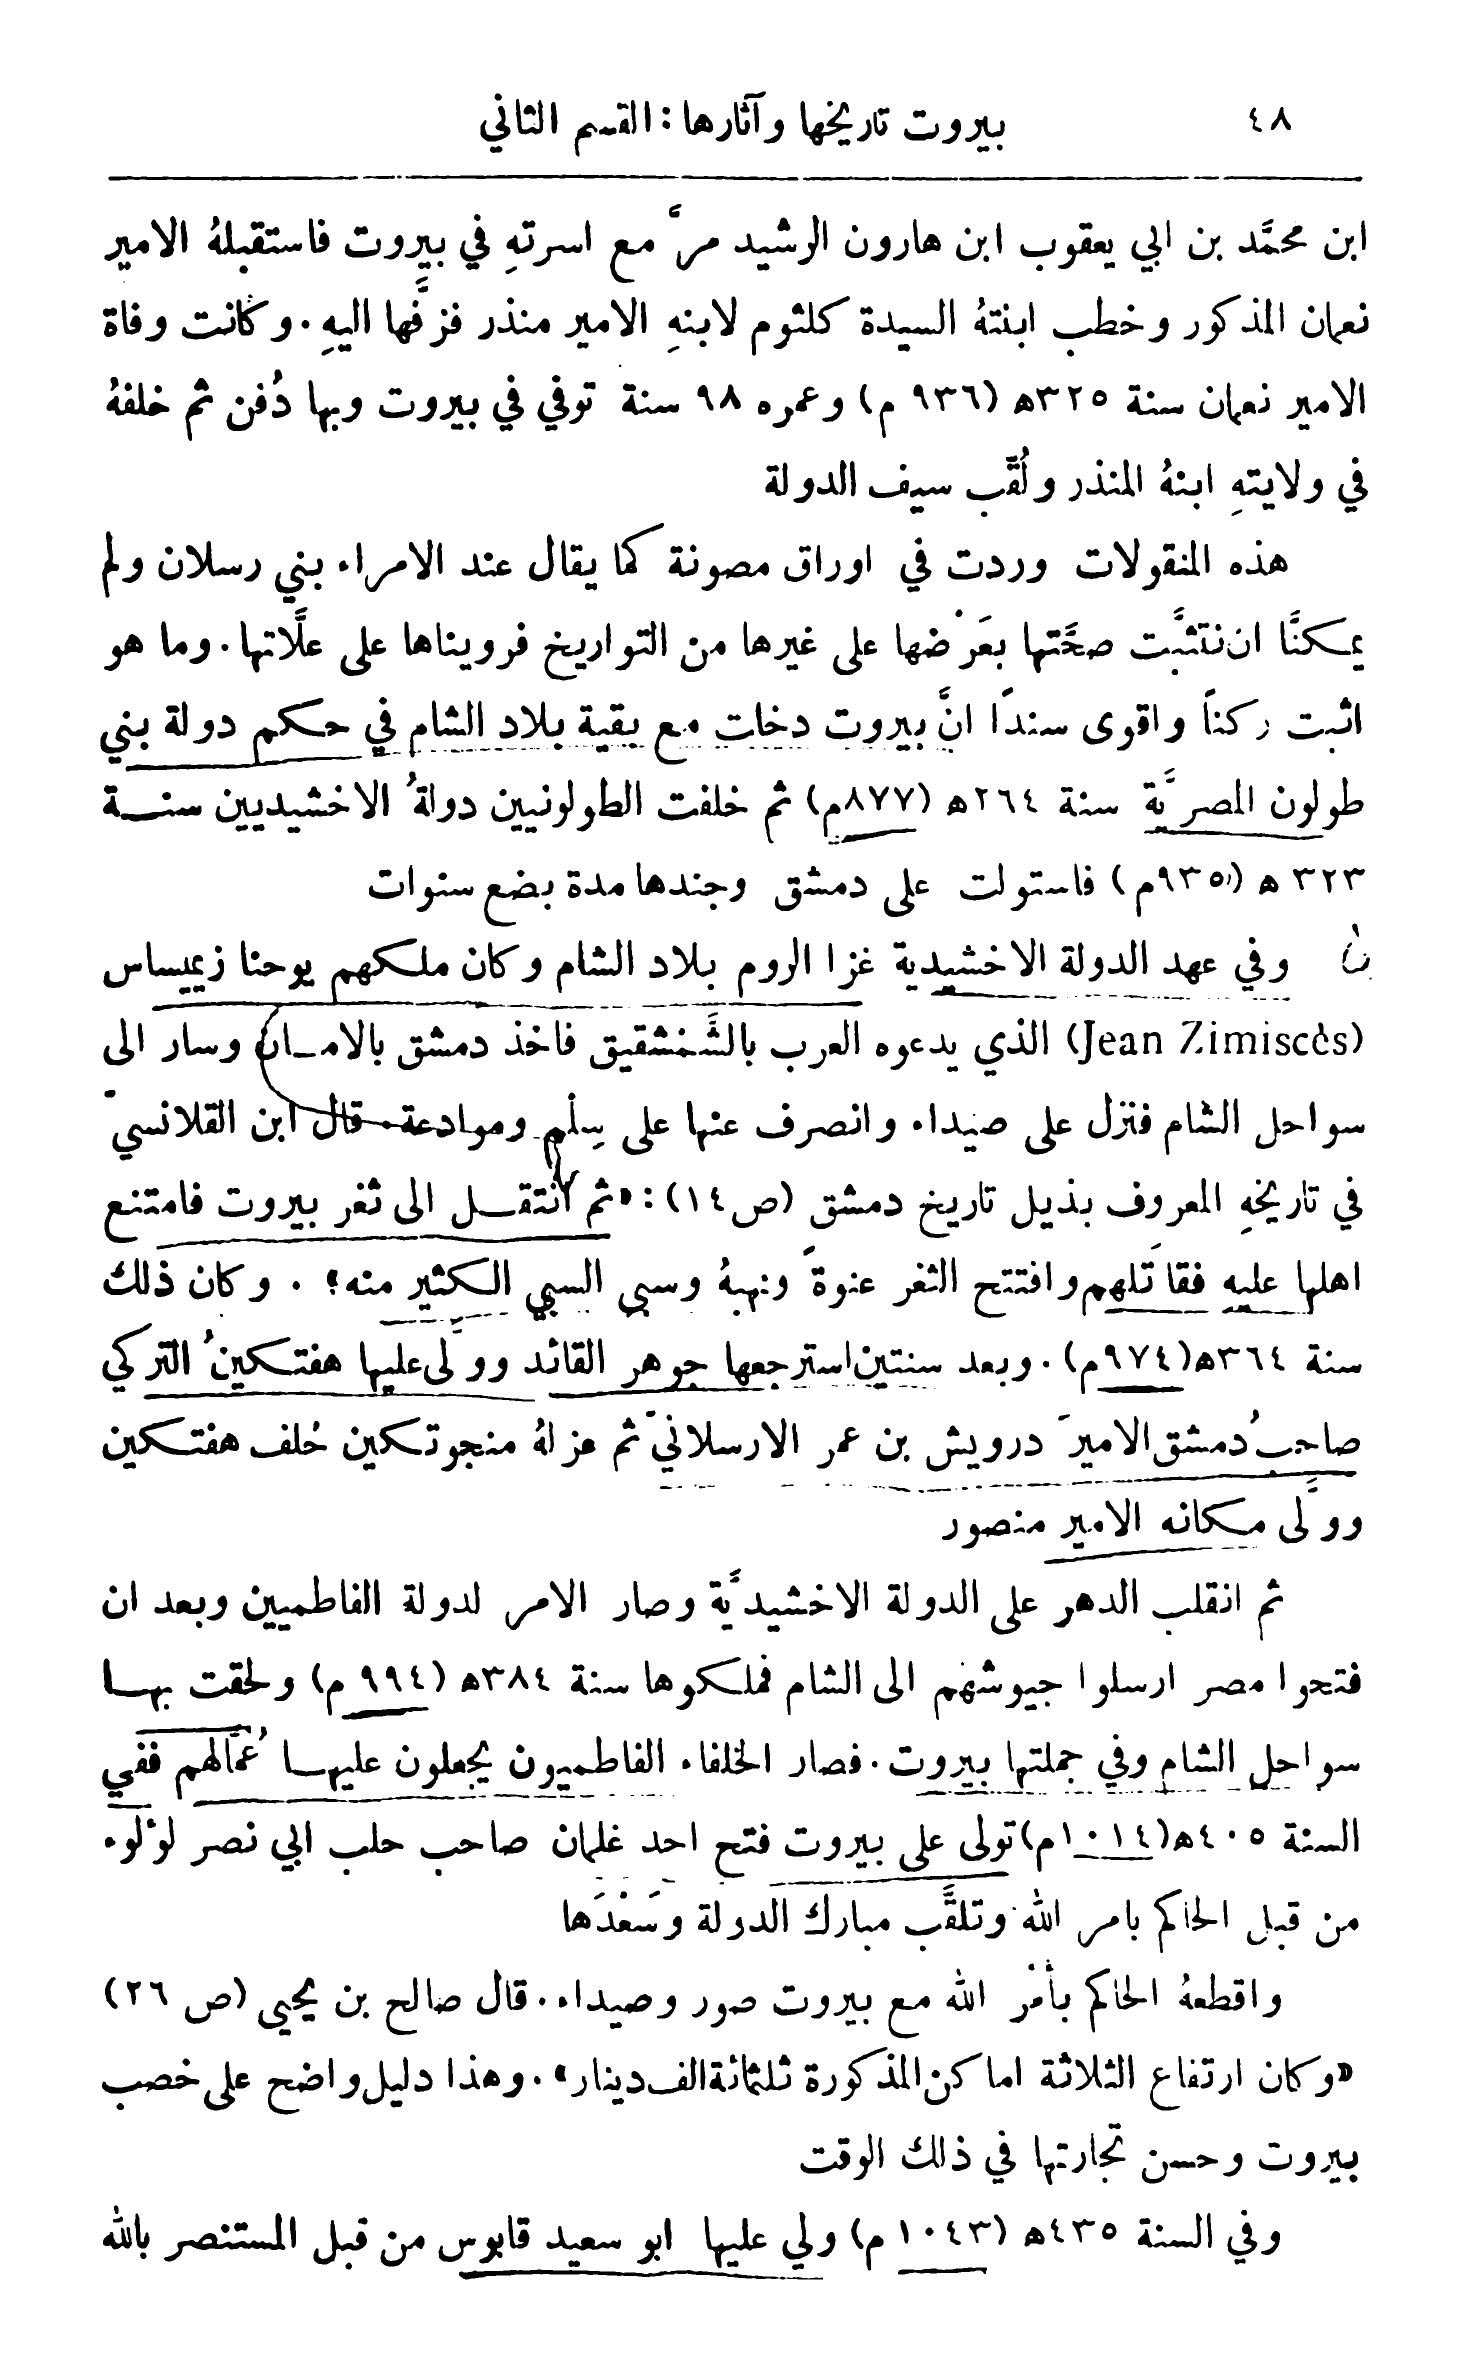 ٤٨ بيروت تاريخها وآثارها: القسم الثاني
ابن محمَّد بن ابي يعقوب ابن هارون الرشيد مرَّ مع اسرتهِ في بيروت فاستقبلهُ الامير
نعمان المذكور وخطب ابنتهُ السيدة كلثوم لابنهِ الامير منذر فزفَّها اليهِ. وكانت وفاة
الامير نعمان سنة ٣٢٥ه (٩٣٦ م) وعمره ٩٨ سنة توفي في بيروت وبها دُفن ثم خلفهُ
في ولايتهِ ابنهُ المنذر ولُقّب سيف الدولة
هذه المنقولات وردت في اوراق مصونة كما يقال عند الامراء بني رسلان ولم
يمكنَّا ان نتثبَّت صحَّتها بعَرْضها على غيرها من التواريخ فرويناها على علَّاتها. وما هو
اثبت ركناً واقوى سنداً انَّ بيروت دخات مع بقية بلاد الشام في حكم دولة بني
طولون المصريَّة سنة ٢٦٤ه (٨٧٧م) ثم خلفت الطولونيين دولةُ الاخشيديين سنة
٣٢٣ ه (٩٣٥م) فاستولت على دمشق وجندها مدة بضع سنوات
وفي عهد الدولة الاخشيدية غزا الروم بلاد الشام وكان ملكهم يوحنا زيميساس
(Jean Zimiscès) الذي يدعوه العرب بالشَّمْشقيق فاخذ دمشق بالامان وسار الى
سواحل الشام فنزل على صيداء وانصرف عنها على سِلْمٍ وموادعة. قال ابن القلانسيّ
في تاريخهِ المعروف بذيل تاريخ دمشق (ص١٤): «ثم انتقل الى ثغر بيروت فامتنع
اهلها عليه فقاتَلهم وافتتح الثغر عنوةً ونهبهُ وسبى السبي الكثير منه» . وكان ذلك
سنة ٣٦٤ه(٩٧٤م). وبعد سنتين استرجعها جوهر القائد وولَّى عليها هفتكينُ التركي
صاحبُ دمشق الاميرَ درويش بن عمر الارسلانيّ ثم عزلهُ منجوتكين خلف هفتكين
وولَّى مكانه الامير منصور
ثم انقلب الدهر على الدولة الاخشيديَّة وصار الامر لدولة الفاطميين وبعد ان
فتحوا مصر ارسلوا جيوشهم الى الشام فملكوها سنة ٣٨٤ه (٩٩٤ م) ولحقت بها
سواحل الشام وفي جملتها بيروت. فصار الخلفاء الفاطميون يجعلون عليها عُمَّالهم ففي
السنة ٤٠٥ه(١٠١٤م) تولى على بيروت فتح احد غلمان صاحب حلب ابي نصر لوْلوء
من قبل الحاكم بامر الله وتلقَّب مبارك الدولة وسَعْدَها
واقطعهُ الحاكم بأمْر الله مع بيروت صور وصيداء. قال صالح بن يحيى (ص ٢٦)
«وكان ارتفاع الثلاثة اماكن المذكورة ثلثمائة الف دينار». وهذا دليل واضح على خصب
بيروت وحسن تجارتها في ذلك الوقت
وفي السنة ٤٣٥ه (١٠٤٣ م) ولي عليها ابو سعيد قابوس من قبل المستنصر بالله